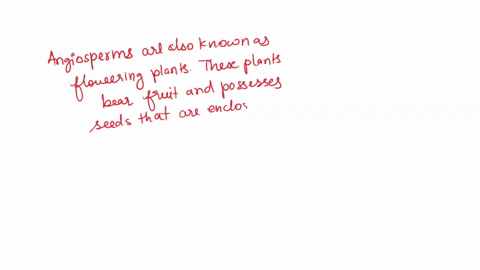 Angiosperms are also known as
flowering plants. These plants
bear fruit and possesses
seeds that are enclo